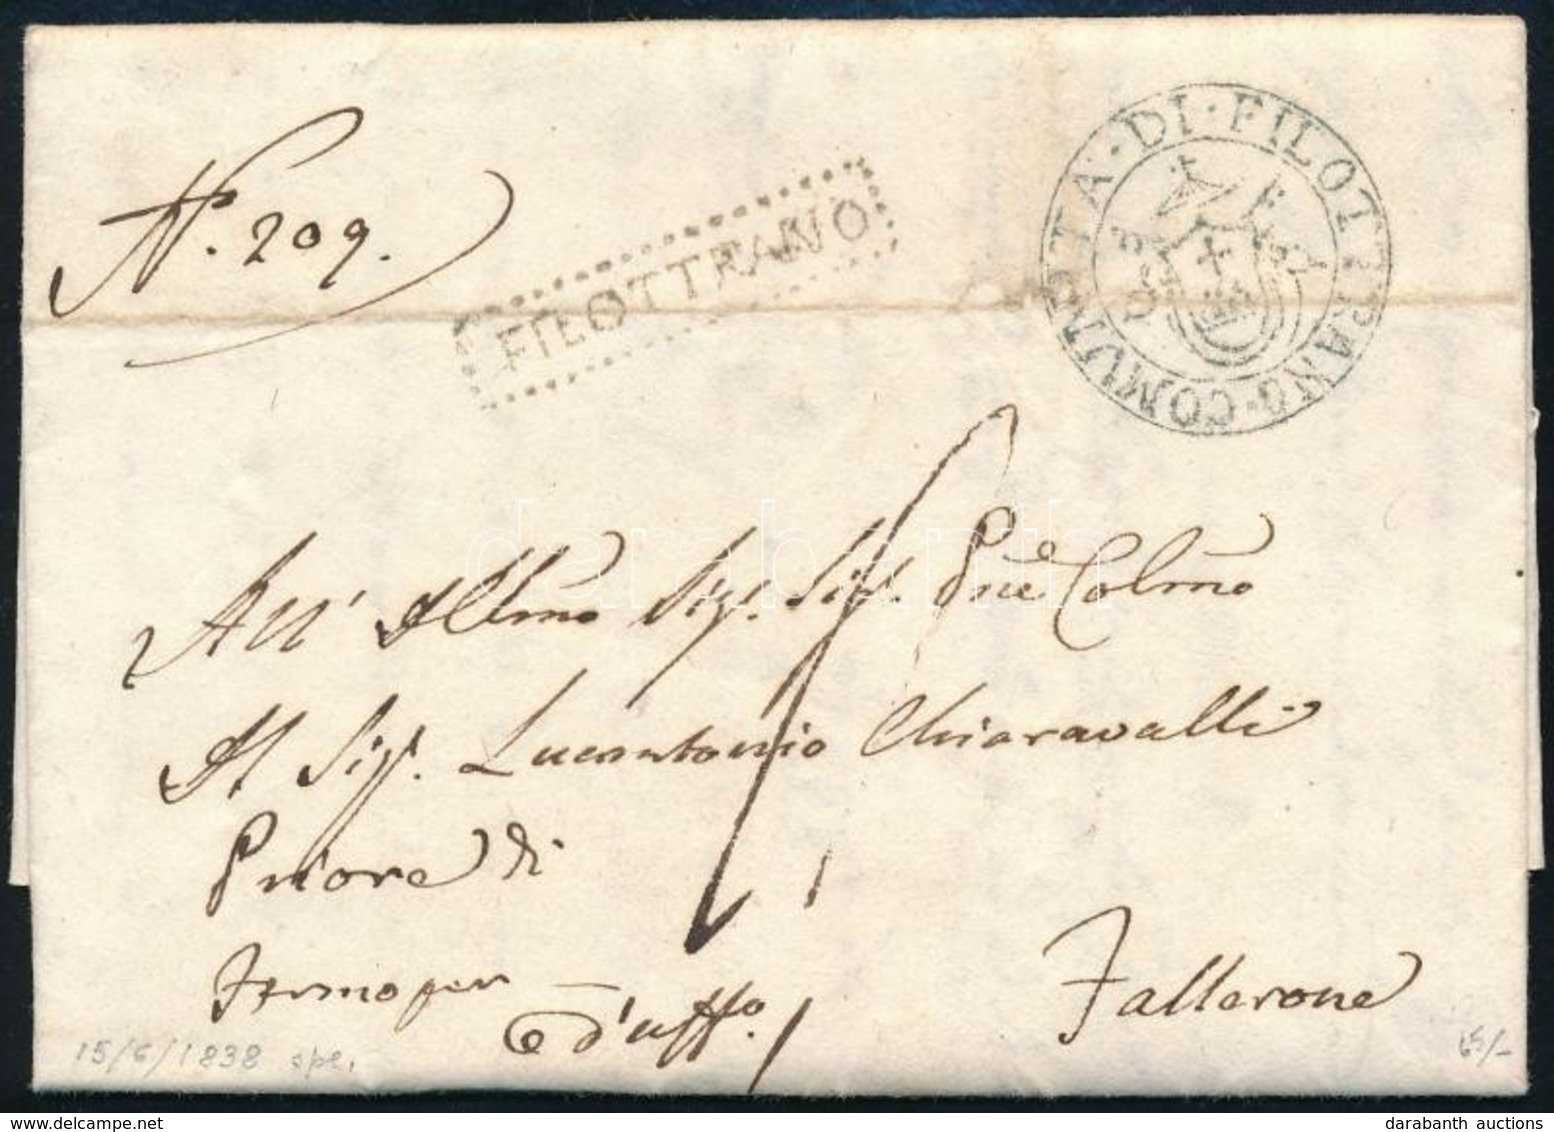 COMUNITA · DI · FILOTTRANO ·
N°. 209.
FILOTTRANO
darabanth
All' Illmo Sig. Sig. Pne Colmo
Il Sig. Lucantonio Chiaravalli
Priore di
Fermo per Fallerone
d'uffo.
15/6/1838 spe.
65/-
darabanth auctions